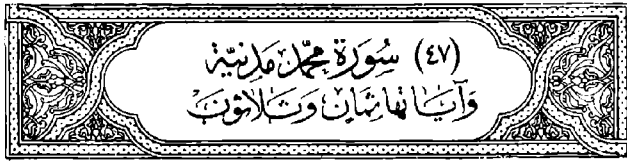 (٤٧) سُورَةُ مُحَمَّدٍ مَدَنِيَّةٌ
وَآيَاتُهَا ثَمَانٍ وَثَلَاثُونَ